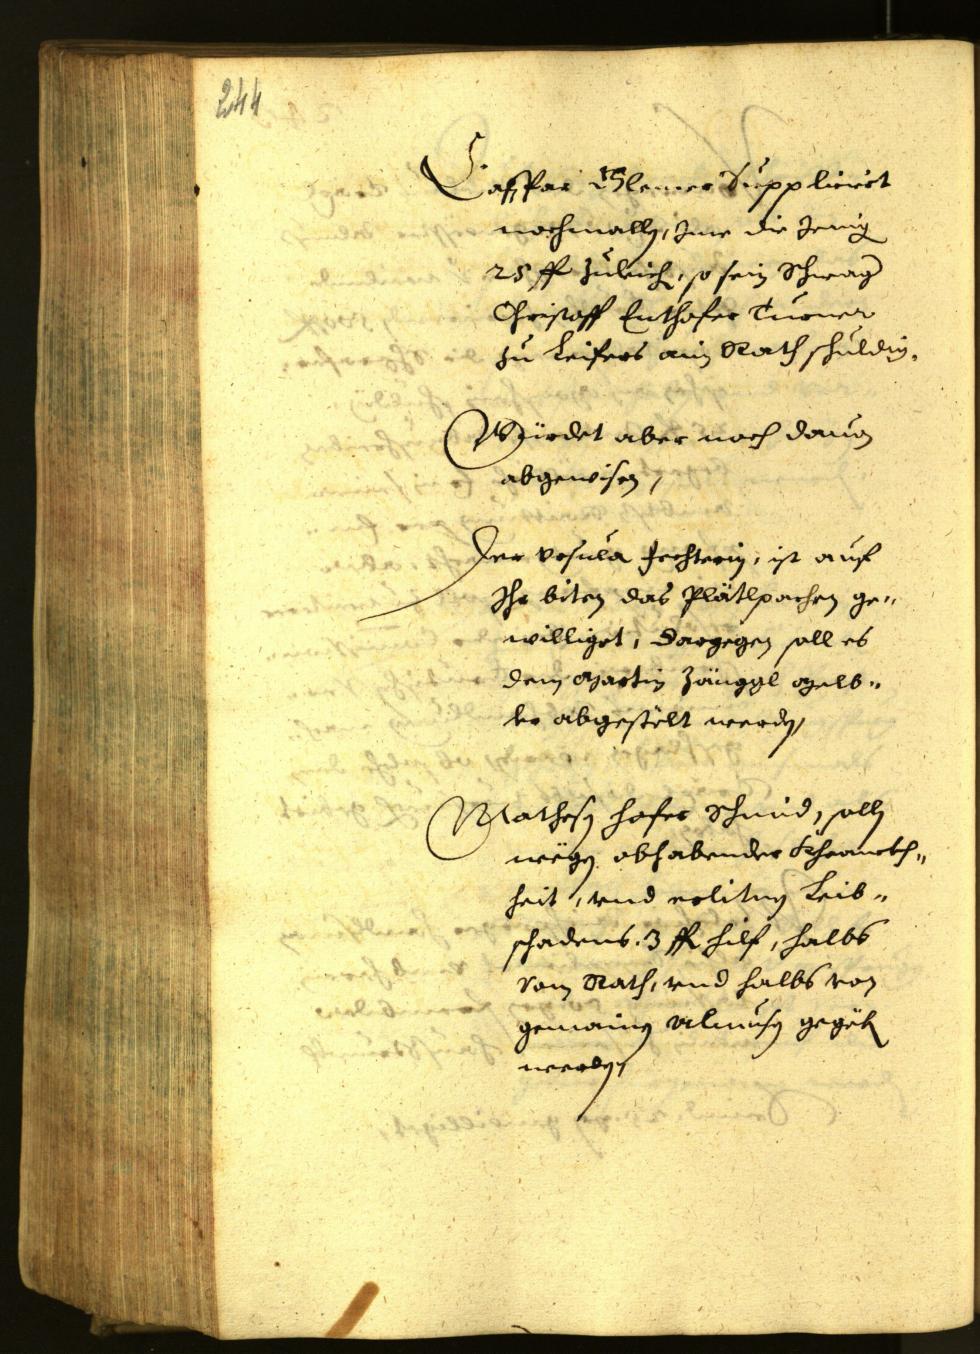 244
Casspar Blemer Suppliciert
nochmalln, Ime die Jenig
25 ff zuleich, so sein Schwag
Christoff Enthofer Turner
zu Leifers ain Rath schuldig.
Würdet aber noch dauon
abgewisen,
Der Vrsula Fechterin, ist auf
Ihr biten das Plätlpachen ge„
williget, Dargegen soll es
dem Martin Zänggl Melb„
ler abgestelt werdn,
Mathesn hofer Schmid, solln
wegn obhabender Khranckh„
heit, vnd erlitnen Leib„
schadens. 3 ff hilf, halbs
vom Rath, vnd halbs von
gemainen Almusn gegebn
werdn,